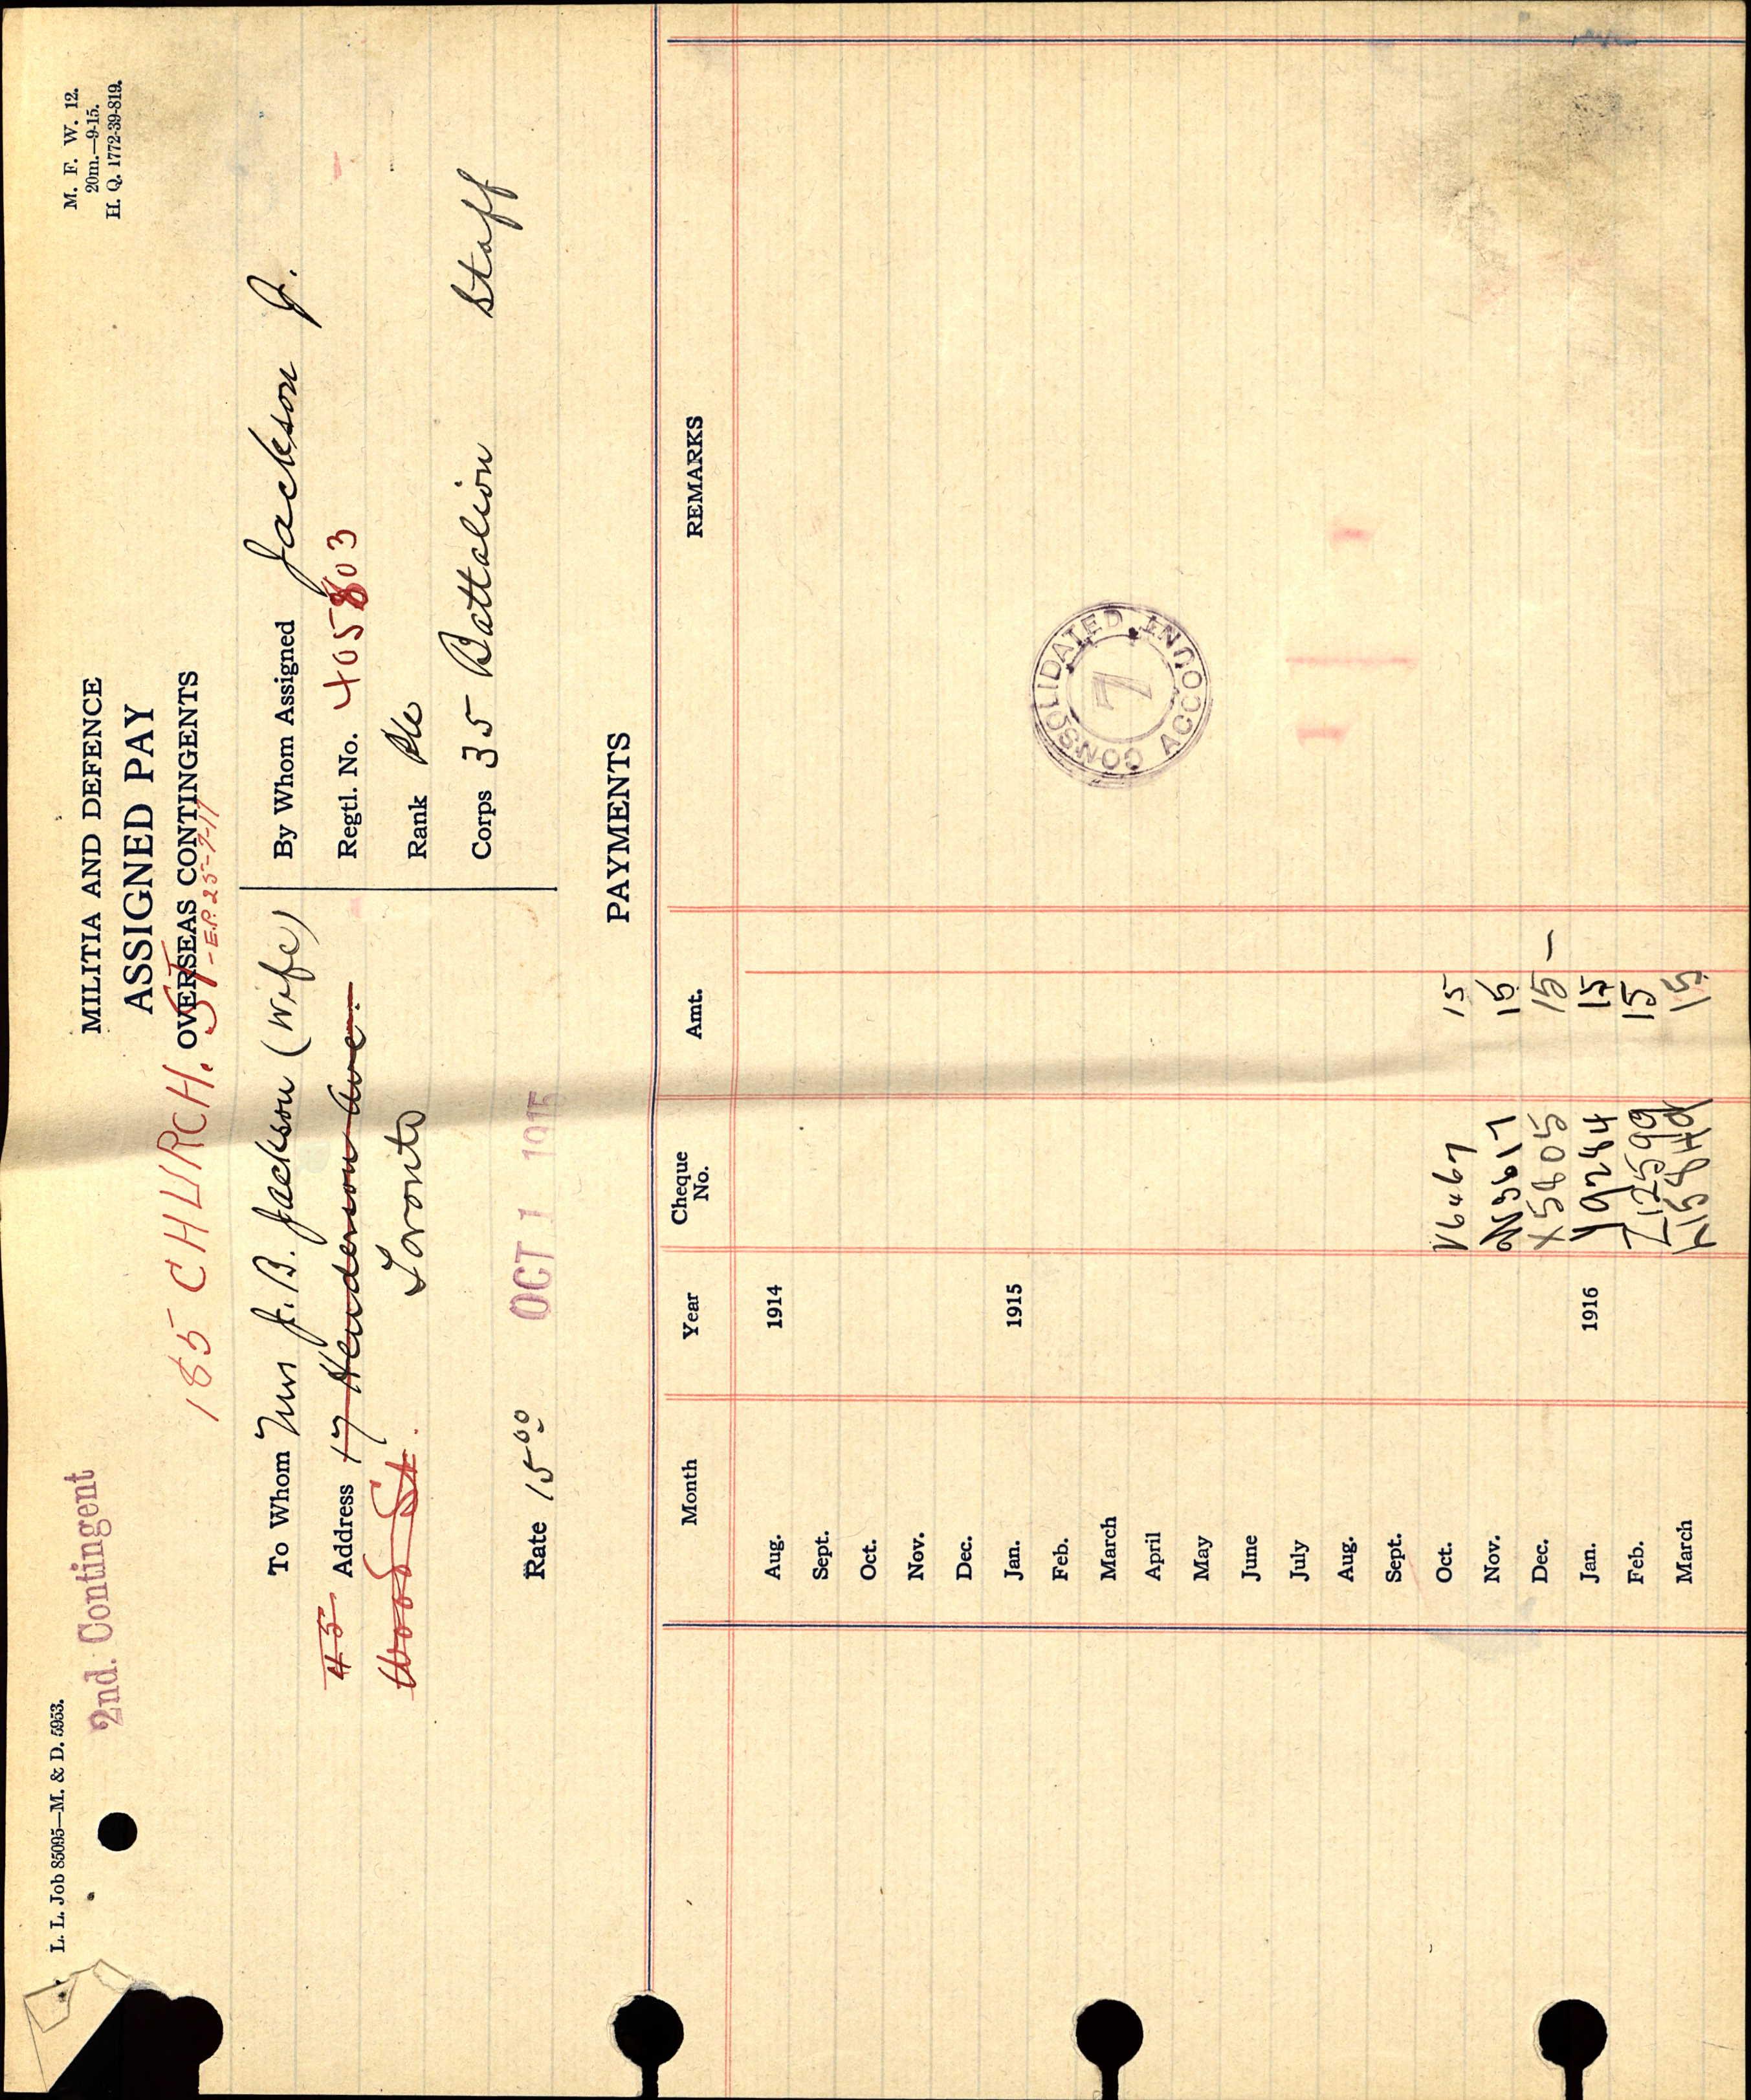 L. L. Job 85095—M. & D. 5953.
M. F. W. 12.
20m.—9-15.
H. Q. 1772-39-819.
2nd. Contingent
MILITIA AND DEFENCE
ASSIGNED PAY
OVERSEAS CONTINGENTS
185 CHURCH. ST - E.P. 25-7-11
To Whom Mrs J. B. Jackson (Wife)
45 Address 17 Henderson Ave.
Wood St. Toronto
Rate 15 00
OCT 1 1915
By Whom Assigned Jackson J.
Regtl. No. 405803
Rank Pte
Corps 35 Battalion Staff
PAYMENTS
Month Year Cheque No. Amt. REMARKS
Aug. 1914
Sept.
Oct.
Nov.
Dec.
Jan. 1915
Feb.
March
April
May
June
July
Aug.
Sept.
Oct. V6467 15
Nov. 15
Dec. X58605 15 —
Jan. 1916 Y9244 15
Feb. Z12599 15
March 15
CONSOLIDATED ACCOUNT
7